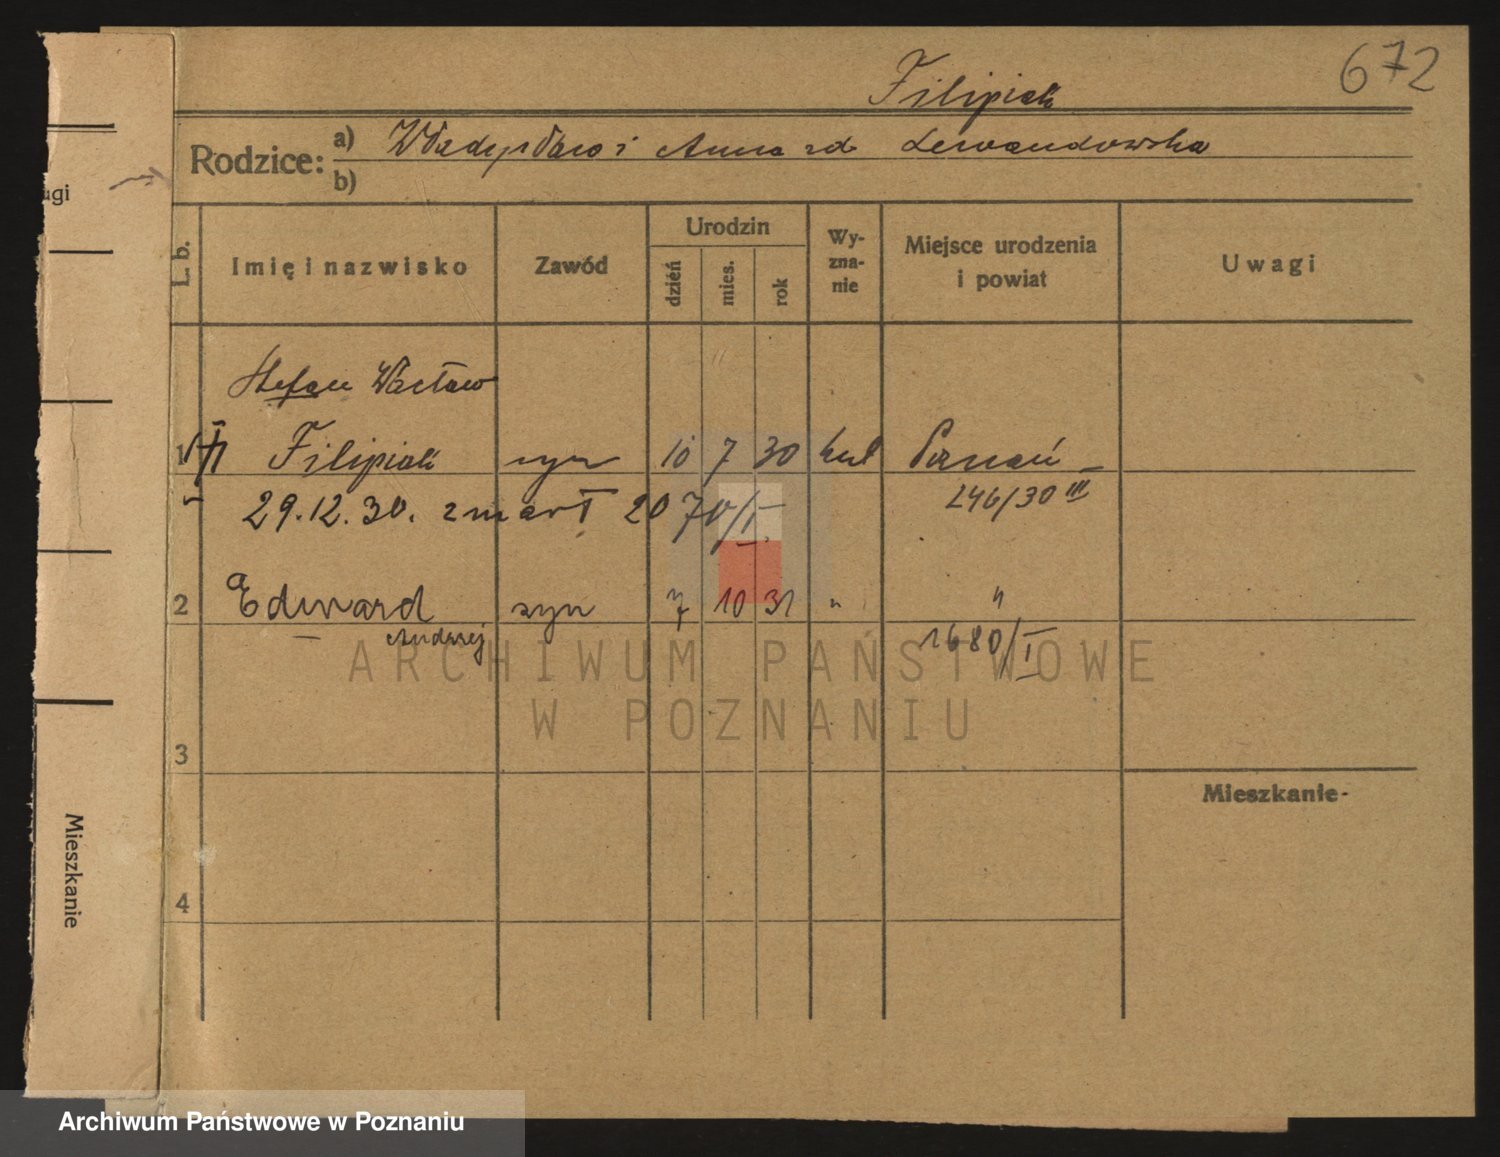 672
Filipiak
Rodzice: a) Władysław i Anna zd Lewandowska
b)
ugi
L. b. Imię i nazwisko Zawód Urodzin dzień mies. rok Wyznanie Miejsce urodzenia i powiat Uwagi
Stefan Wacław
1 Filipiak syn 10 7 30 kat Poznań
246/30 III
29.12.30. zmarł 2070/I.
2 Edward syn 7 10 31 " "
Andrzej
1680/I
ARCHIWUM PAŃSTWOWE
W POZNANIU
3
Mieszkanie
Mieszkanie
4
Archiwum Państwowe w Poznaniu